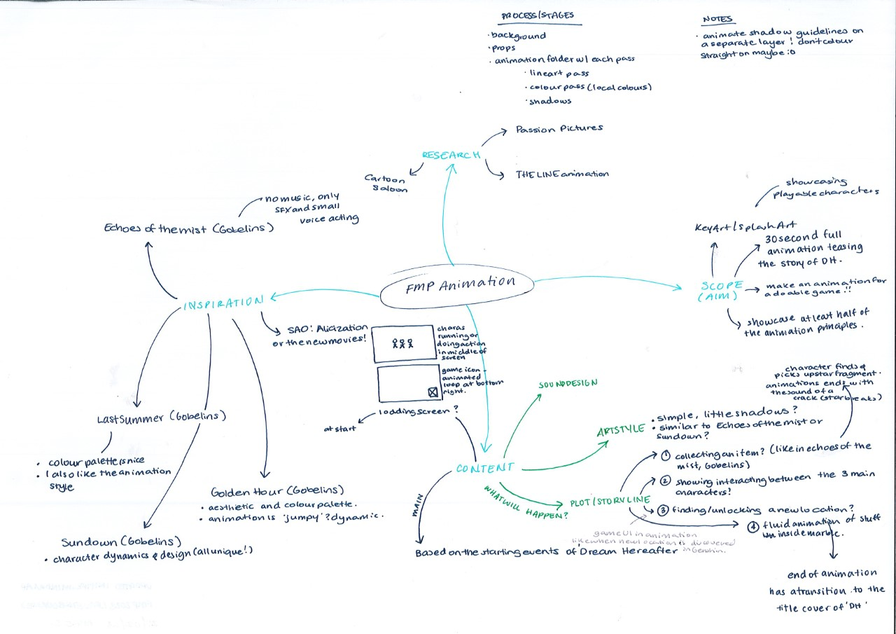 PROCESS/STAGES
• background
• props
• animation folder w/ each pass
• lineart pass
• colour pass (local colours)
• shadows
NOTES
• animate shadow guidelines on
a separate layer! don't colour
straight on maybe :0
RESEARCH
Passion Pictures
THE LINE animation
Cartoon
Saloon
no music, only
SFX and small
voice acting
Echoes of the mist (Gobelins)
INSPIRATION
SAO: Alicization
or the new movies!
Last Summer (Gobelins)
• colour palette is nice
• I also like the animation
style
Sundown (Gobelins)
• character dynamics & design (all unique!)
Golden Hour (Gobelins)
• aesthetic and colour palette.
• animation is 'jumpy'? dynamic.
FMP Animation
showcasing
playable characters
Key Art/Splash Art
30 second full
animation teasing
the story of DH.
SCOPE
(AIM)
make an animation for
a doable game!!
showcase at least half of
the animation principles.
charas
running or
doing action
in middle of
screen
game icon -
animated
loop at bottom
right.
loading screen?
at start
CONTENT
SOUND DESIGN
ARTSTYLE
• simple, little shadows?
• similar to Echoes of the mist or
Sundown?
WHAT WILL HAPPEN?
PLOT/STORYLINE
① collecting an item? (like in echoes of the
mist, Gobelins)
② showing interacting between the 3 main
characters!
③ finding/unlocking a new location?
④ fluid animation of stuff
inside marble.
character finds &
picks up star fragment.
animations ends with
the sound of a
crack (star breaks)
game UI in animation
like when new location is discovered
in Genshin.
MAIN
Based on the starting events of Dream Hereafter
end of animation
has a transition to the
title cover of 'DH'